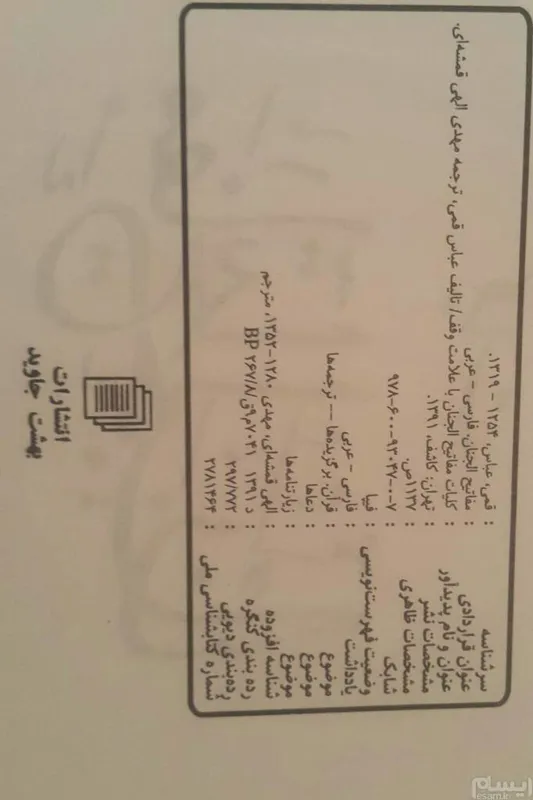 سرشناسه : قمی، عباس، ۱۲۵۴ - ۱۳۱۹.
عنوان قراردادی : مفاتیح الجنان. فارسی - عربی
عنوان و نام پدیدآور : کلیات مفاتیح الجنان با علامت وقف/ تالیف عباس قمی، ترجمه مهدی الهی قمشه‌ای.
مشخصات نشر : تهران: کاشف، ۱۳۹۱.
مشخصات ظاهری : ۱۱۳۷ص.
شابک : ۹۷۸-۶۰۰-۹۳۰۴۷-۰-۷
وضعیت فهرست‌نویسی : فیپا
یادداشت : فارسی - عربی
موضوع : قرآن. برگزیده‌ها -- ترجمه‌ها
موضوع : دعاها
موضوع : زیارتنامه‌ها
شناسه افزوده : الهی قمشه‌ای، مهدی ۱۲۸۰-۱۳۵۲، مترجم
رده بندی کنگره : د ۱۳۹۱ ۷۰۴۱م۹ق/۲۶۷/۸ BP
رده‌بندی دیویی : ۲۹۷/۷۷۲
شماره کتابشناسی ملی : ۲۷۸۱۴۶۴
انتشارات
بهشت جاوید
ایسام
esam.ir